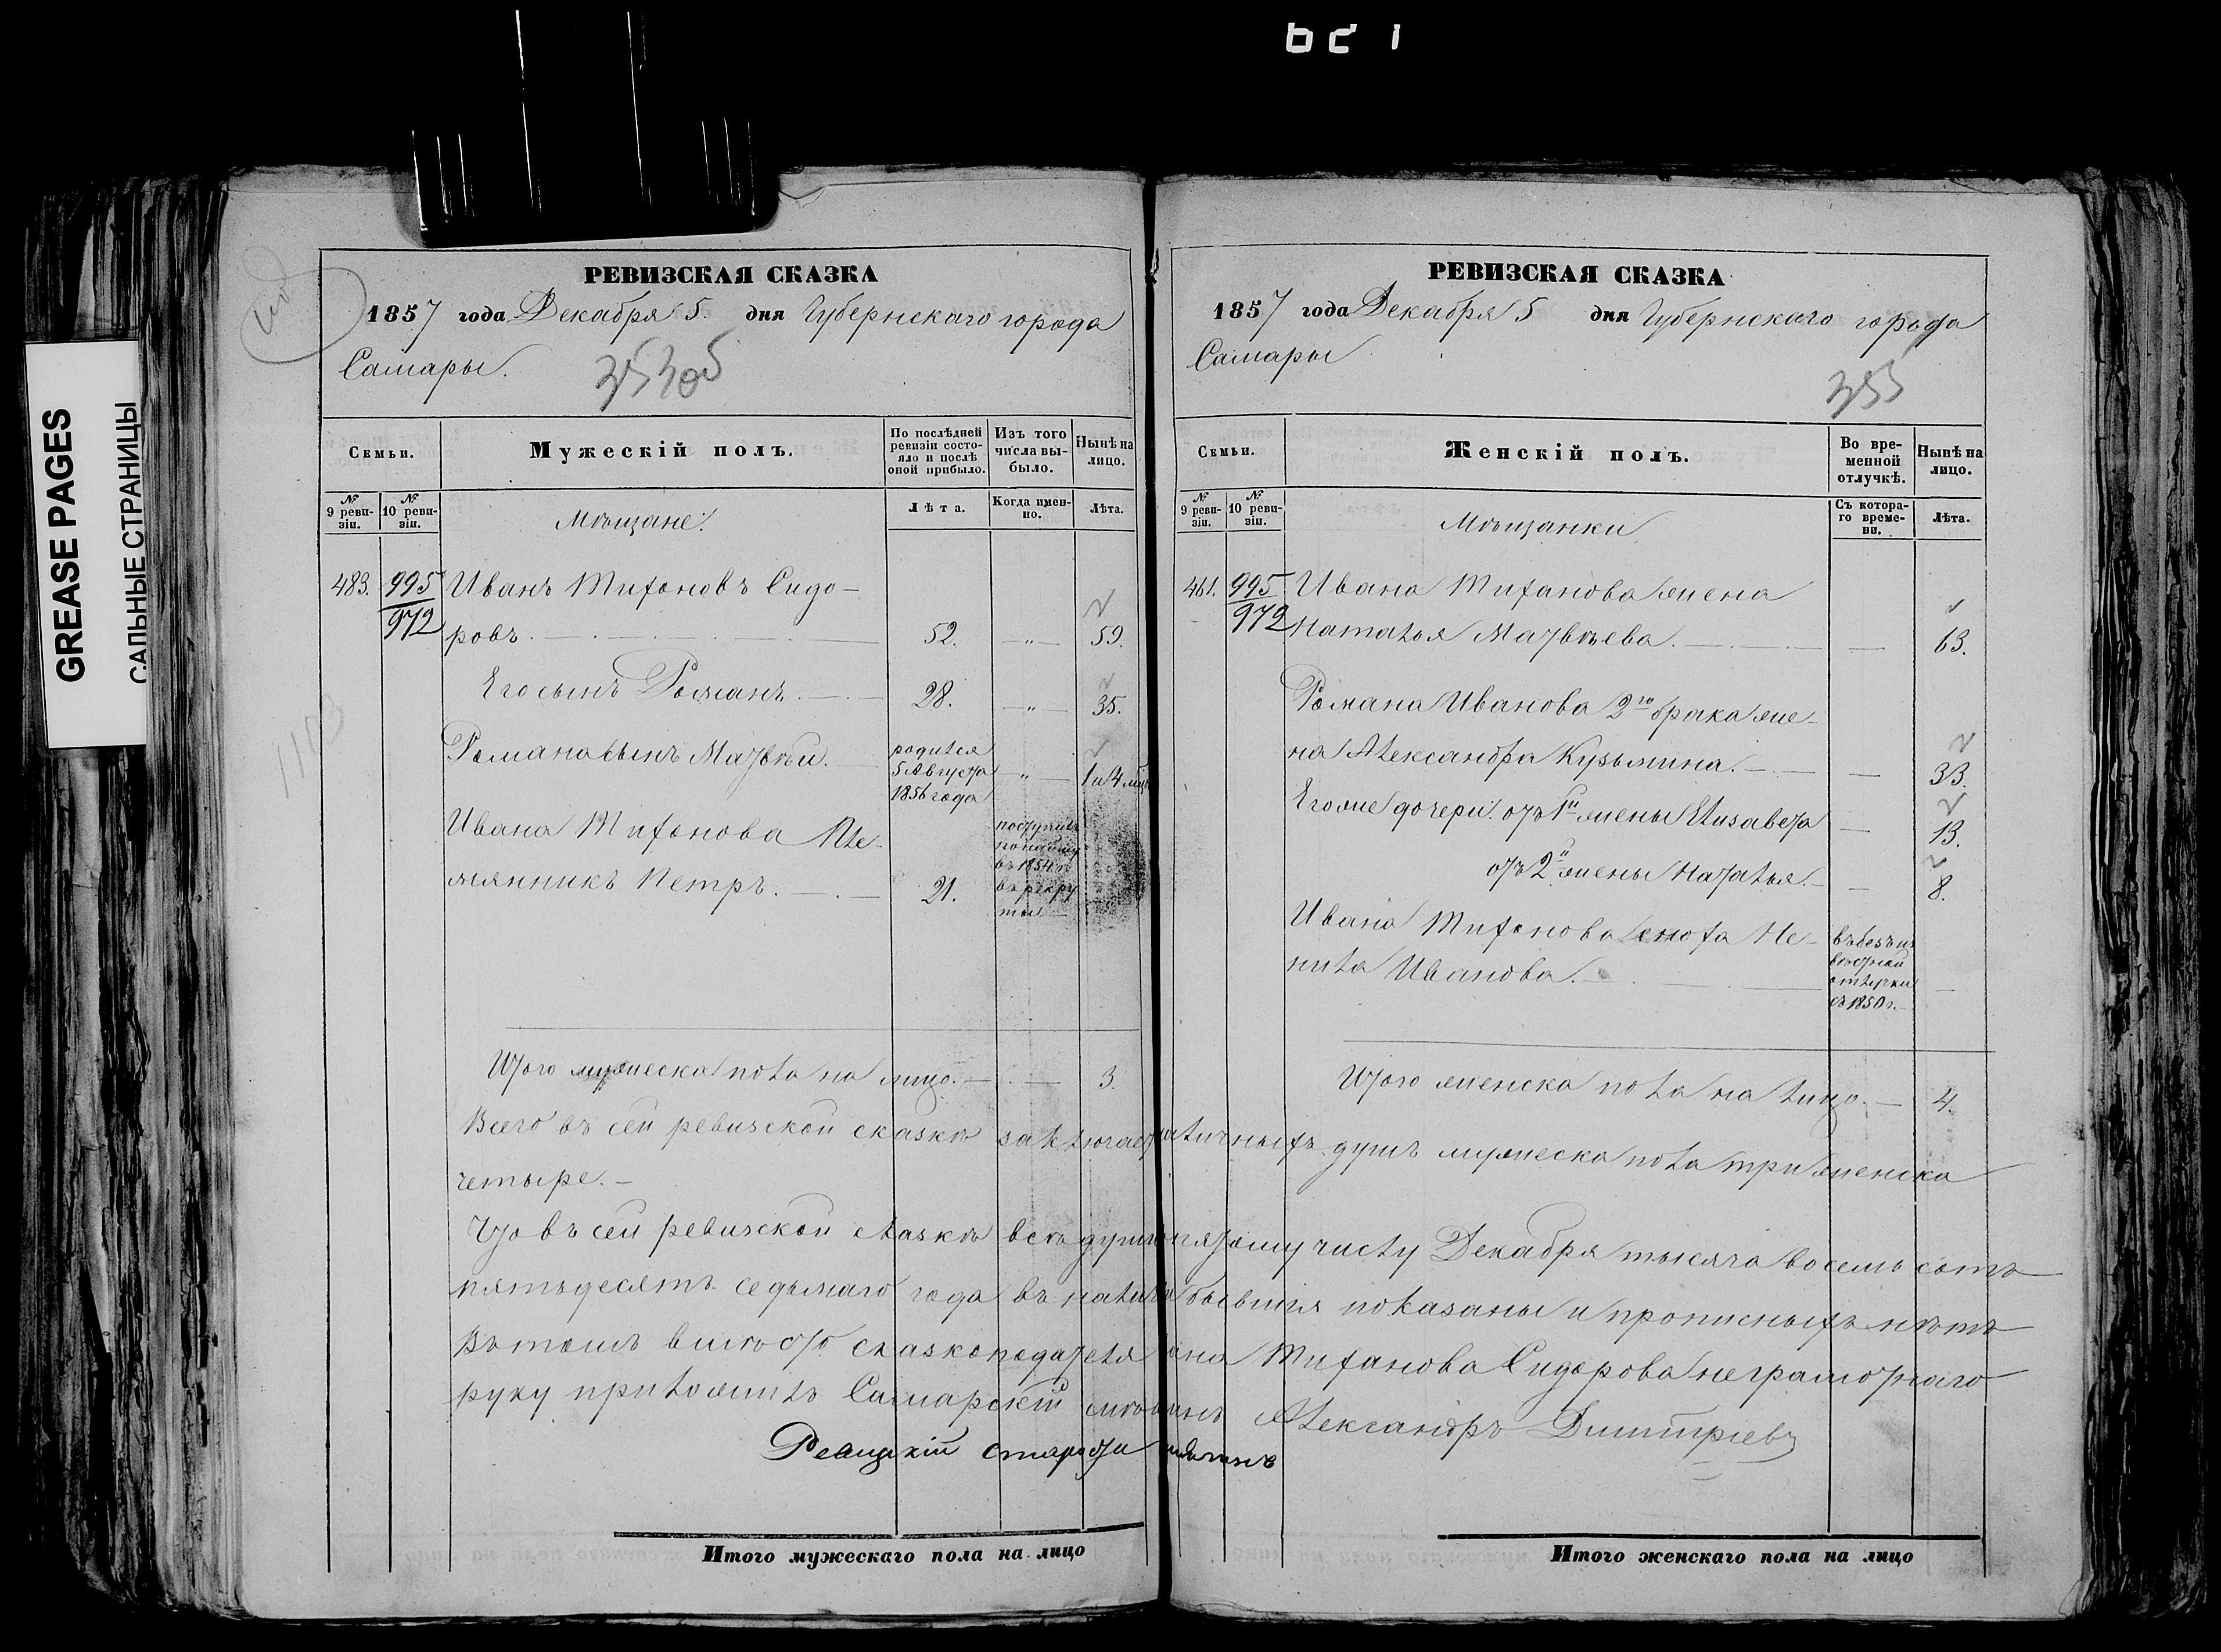 GREASE PAGES
САЛЬНЫЕ СТРАНИЦЫ
РЕВИЗСКАЯ СКАЗКА
1857 года Декабря 5. дня Губернскаго города
Самары.
Семьи.
Мужескій полъ.
По послѣдней ревизіи состояло и послѣ оной прибыло.
Изъ того числа выбыло.
Нынѣ на лицо.
№ 9 ревизіи.
№ 10 ревизіи.
Мѣщане.
Лѣта.
Когда именно.
Лѣта.
483. 995 Иванъ Тифоновъ Сидо-
972 ровъ. 52. — „ — 59.
Его сынъ Романъ. 28. — „ — 35.
Романа сынъ Матвѣй. родился 5 Августа 1856 года „ 1 и 4 мѣс
Ивана Тифонова Пле-
мянникъ Петръ. 21. поступилъ по найму въ 1854 г. въ рекруты
Итого мужеска пола на лицо. 3.
РЕВИЗСКАЯ СКАЗКА
1857 года Декабря 5 дня Губернскаго города
Самары
355
Семьи.
Женскій полъ.
Во временной отлучкѣ.
Нынѣ на лицо.
№ 9 ревизіи.
№ 10 ревизіи.
Мѣщанки
Съ котораго времени.
Лѣта.
461. 995 Ивана Тифанова жена
972 Наталья Матвѣева. — 63.
Романа Иванова 2го брака же-
на Александра Кузьмина. — 33.
Его же дочери: отъ 1й жены Елизавета — 13.
отъ 2й жены Наталья. — 8.
Ивана Тифонова сноха Не-
нила Иванова. въ безъизвѣстной отлучки съ 1850 г. —
Итого женска пола на лицо. — 4.
Всего въ сей ревизской сказкѣ заключает наличныхъ душъ мужеска пола три женска
четыре. —
Что въ сей ревизской сказкѣ всѣ души пятому числу Декабря тысяча восемь сотъ
пятьдесятъ седьмаго года въ налич бывшія показаны и прописныхъ нѣтъ
Въ томъ вмѣсто сказкоподателя ана Тифанова Сидорова неграмотнаго
руку приложилъ Самарскій мѣ инъ Александръ Димитріевъ
староста
Итого мужескаго пола на лицо
Итого женскаго пола на лицо